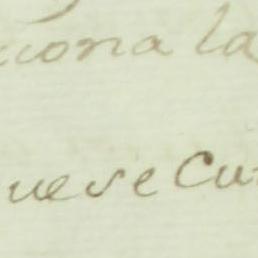 iona la
ue se Cu